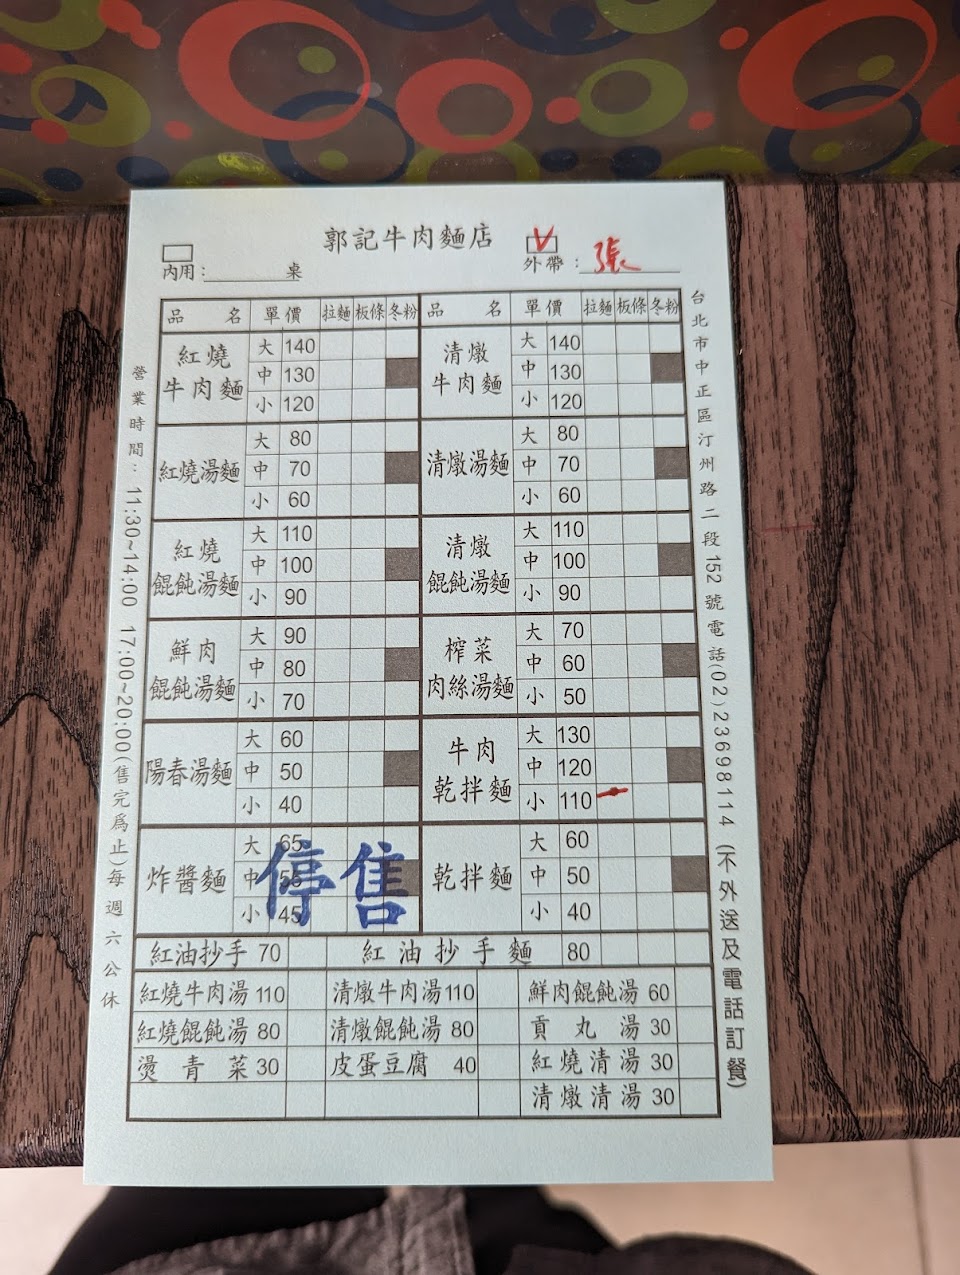 郭記牛肉麵店
內用：　　　桌
V
外帶：張
品名 單價 拉麵 板條 冬粉 品名 單價 拉麵 板條 冬粉
紅燒牛肉麵 大 140 中 130 小 120
清燉牛肉麵 大 140 中 130 小 120
紅燒湯麵 大 80 中 70 小 60
清燉湯麵 大 80 中 70 小 60
紅燒餛飩湯麵 大 110 中 100 小 90
清燉餛飩湯麵 大 110 中 100 小 90
鮮肉餛飩湯麵 大 90 中 80 小 70
榨菜肉絲湯麵 大 70 中 60 小 50
陽春湯麵 大 60 中 50 小 40
牛肉乾拌麵 大 130 中 120 小 110
炸醬麵 大 65 中 55 小 45
停售
乾拌麵 大 60 中 50 小 40
紅油抄手 70 紅油抄手麵 80
紅燒牛肉湯 110 清燉牛肉湯 110 鮮肉餛飩湯 60
紅燒餛飩湯 80 清燉餛飩湯 80 貢丸湯 30
燙青菜 30 皮蛋豆腐 40 紅燒清湯 30
清燉清湯 30
營業時間：11:30~14:00 17:00~20:00(售完為止)每週六公休
台北市中正區汀州路二段152號電話(02)23698114 (不外送及電話訂餐)